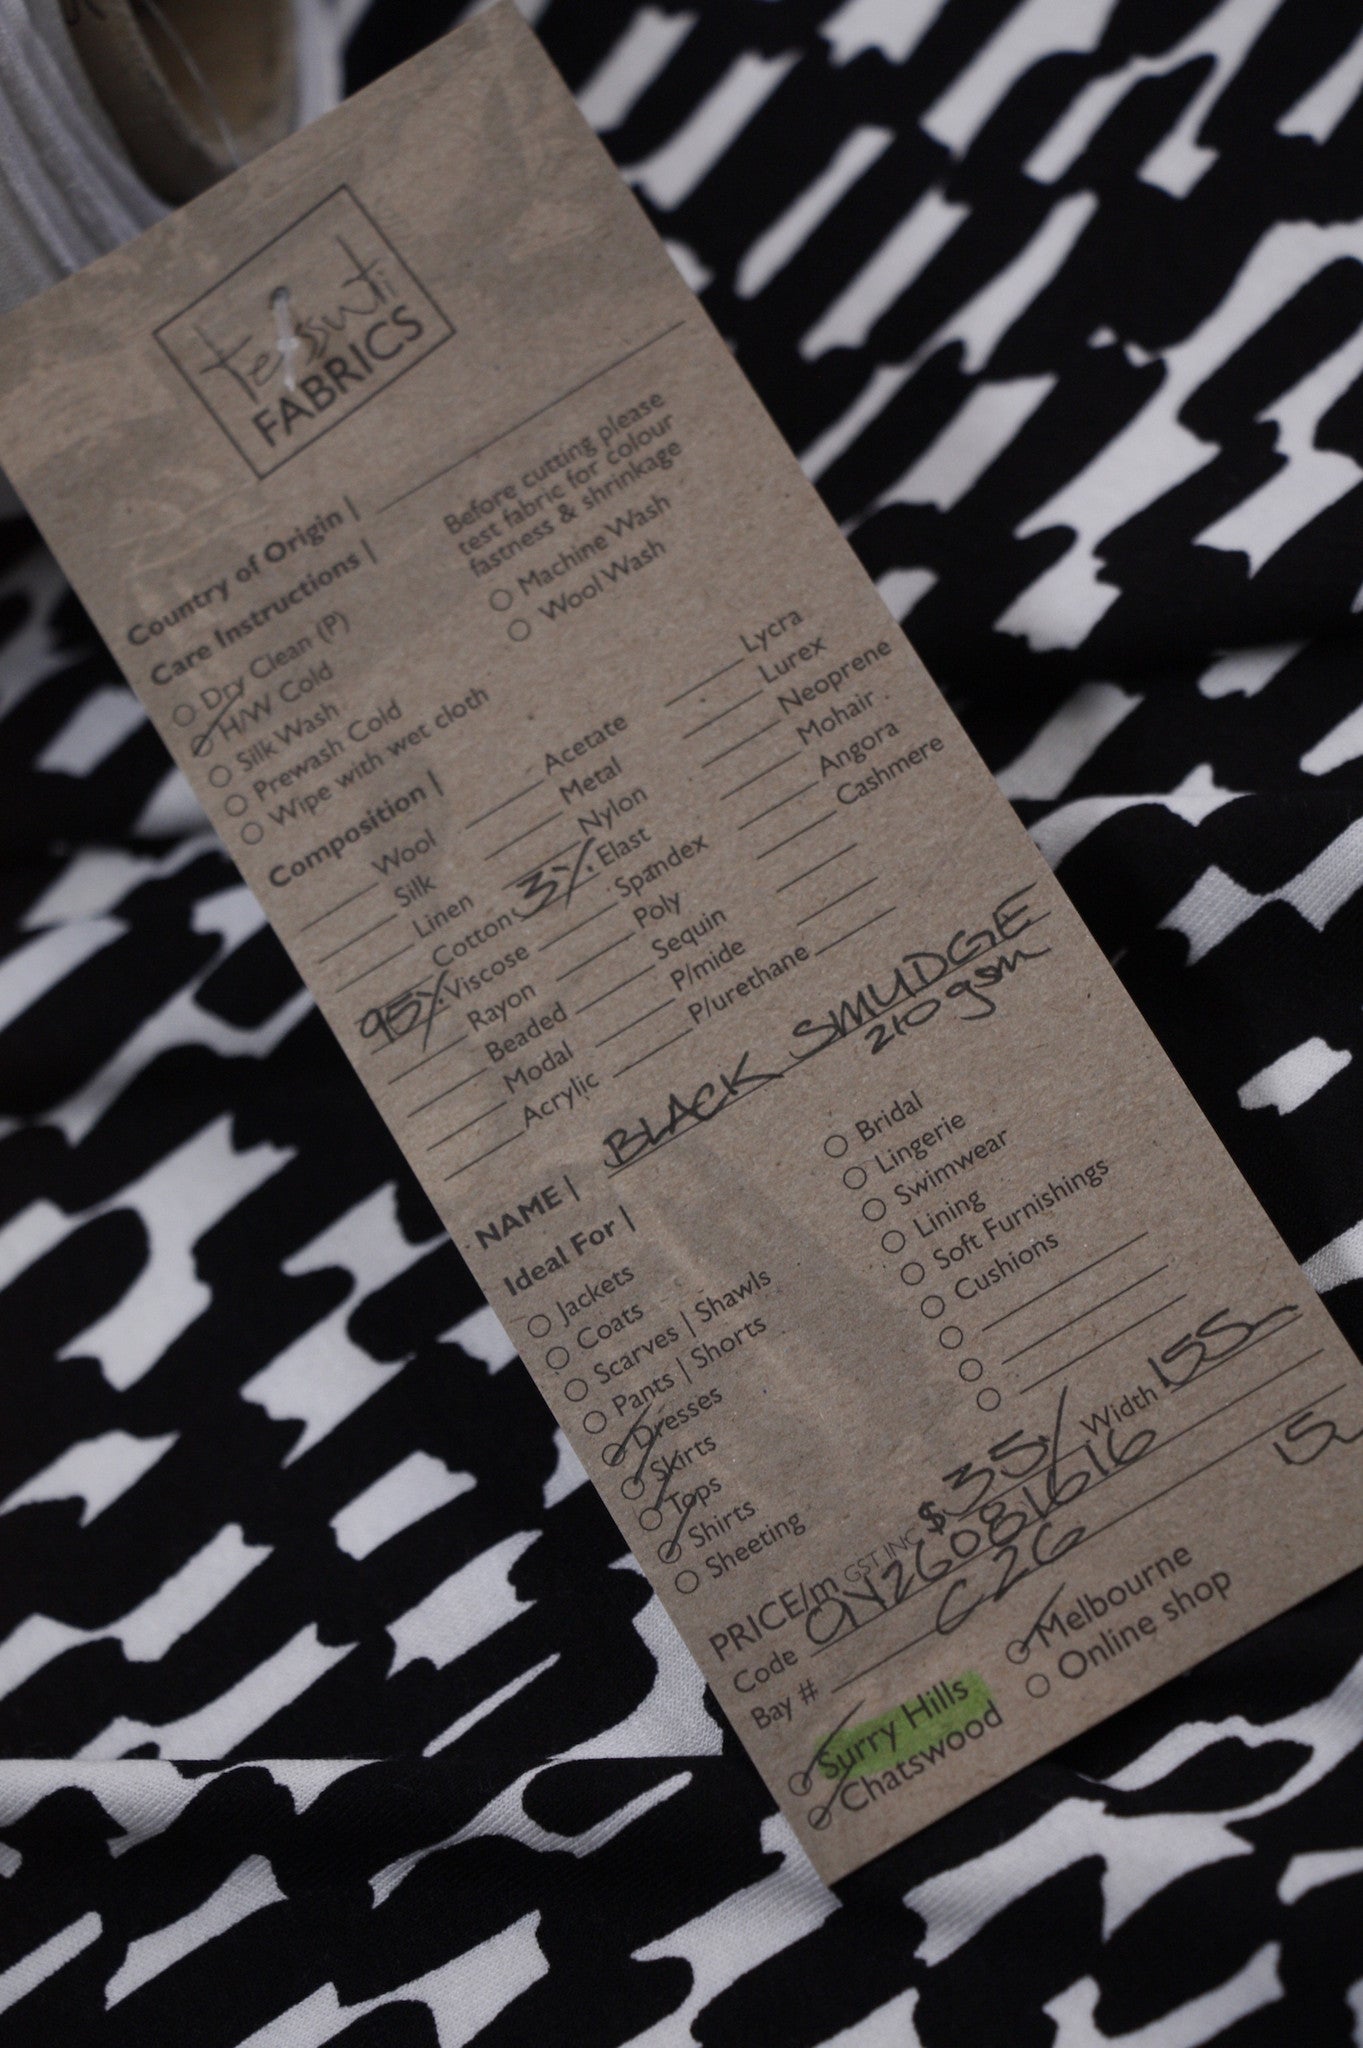 tessuti
FABRICS
Country of Origin |
Care Instructions |
Before cutting please
test fabric for colour
fastness & shrinkage
Dry Clean (P)
H/W Cold
Silk Wash
Prewash Cold
Wipe with wet cloth
Machine Wash
Wool Wash
Composition |
Wool
Silk
Linen
Cotton
95% Viscose
Rayon
Beaded
Modal
Acrylic
Acetate
Metal
Nylon
3% Elast
Spandex
Poly
Sequin
P/mide
P/urethane
Lycra
Lurex
Neoprene
Mohair
Angora
Cashmere
NAME | BLACK SMUDGE
210gsm
Ideal For |
Jackets
Coats
Scarves | Shawls
Pants | Shorts
Dresses
Skirts
Tops
Shirts
Sheeting
Bridal
Lingerie
Swimwear
Lining
Soft Furnishings
Cushions
PRICE/m GST INC $35/ Width 155
Code ON26081616
Bay # C26 15
Surry Hills
Chatswood
Melbourne
Online shop